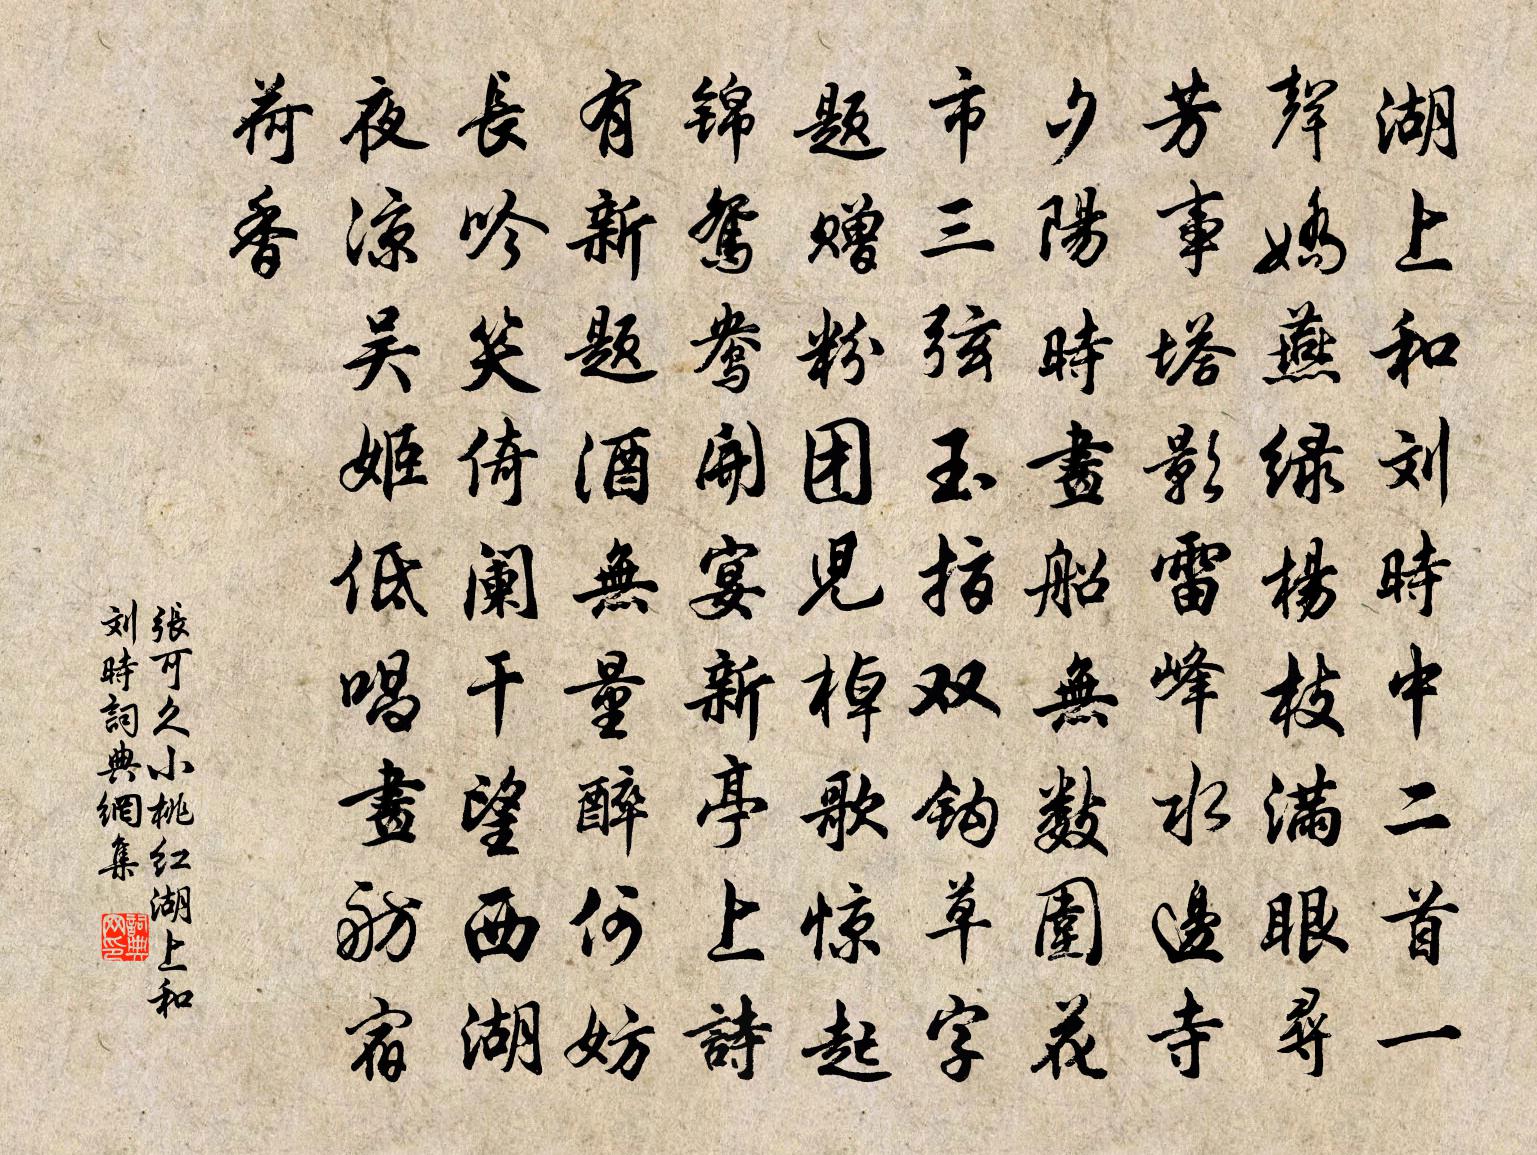 湖上和刘時中二首一
聲嬌燕绿楊枝满眼尋
芳事塔影雷峰水邊寺
夕陽時畫船無数圍花
市三弦玉指双钩草字
题赠粉团児棹歌惊起
锦鴛鸯開宴新亭上詩
有新题酒無量醉何妨
長吟笑倚阑干望西湖
夜凉吴姬低唱畫舫宿
荷香
張可久小桃红湖上和
刘時詞典網集
詞典网印